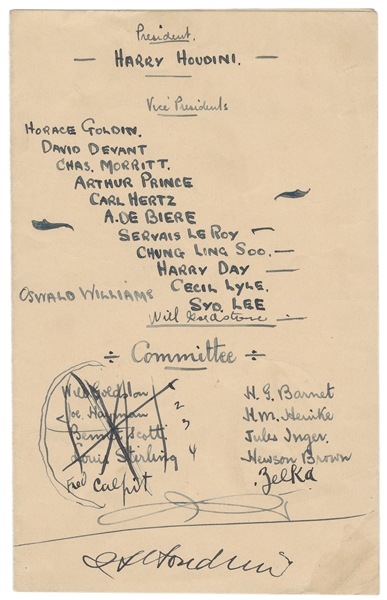 President.
— HARRY HOUDINI. —
Vice Presidents
HORACE GOLDIN.
DAVID DEVANT
CHAS. MORRITT.
ARTHUR PRINCE
CARL HERTZ
A. DE BIERE
SERVAIS LE ROY —
CHUNG LING SOO. —
HARRY DAY —
CECIL LYLE.
OSWALD WILLIAMS
SYD. LEE
Will Goldston —
÷ Committee ÷
Will Goldston 1
Joe Hayman 2
Bennet Scott 3
Louis Sterling 4
Fred Culpit
H. G. Barnet
H. M. Heinke
Jules Inger.
Hewson Brown
Zelka
Houdini